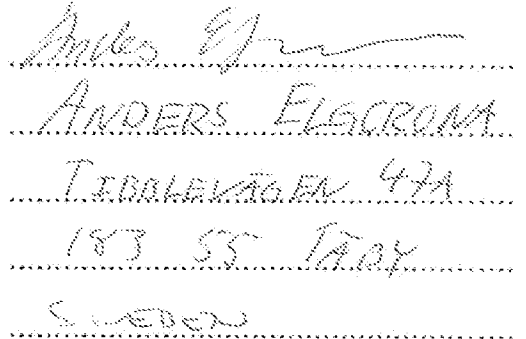 Anders
ANDERS ELGCRONA
TIBBLEVÄGEN 47A
183 55 TÄBY
SWEDEN